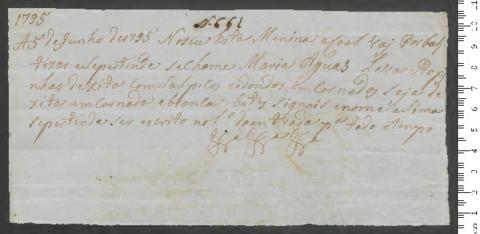 1795
Nº 661
A 5 de Junho de 1795 Noseu Esta Menina aCoal Vaj Porbau
tizar esepertinde seChame Maria Leva Rop
nhas dexita Com Salpicos redondos emCarnados e Saja de
xita emCarnada ebranca Estes signais enome asima
sepertinde ser escrito no Lº daentrada pª todo otempo